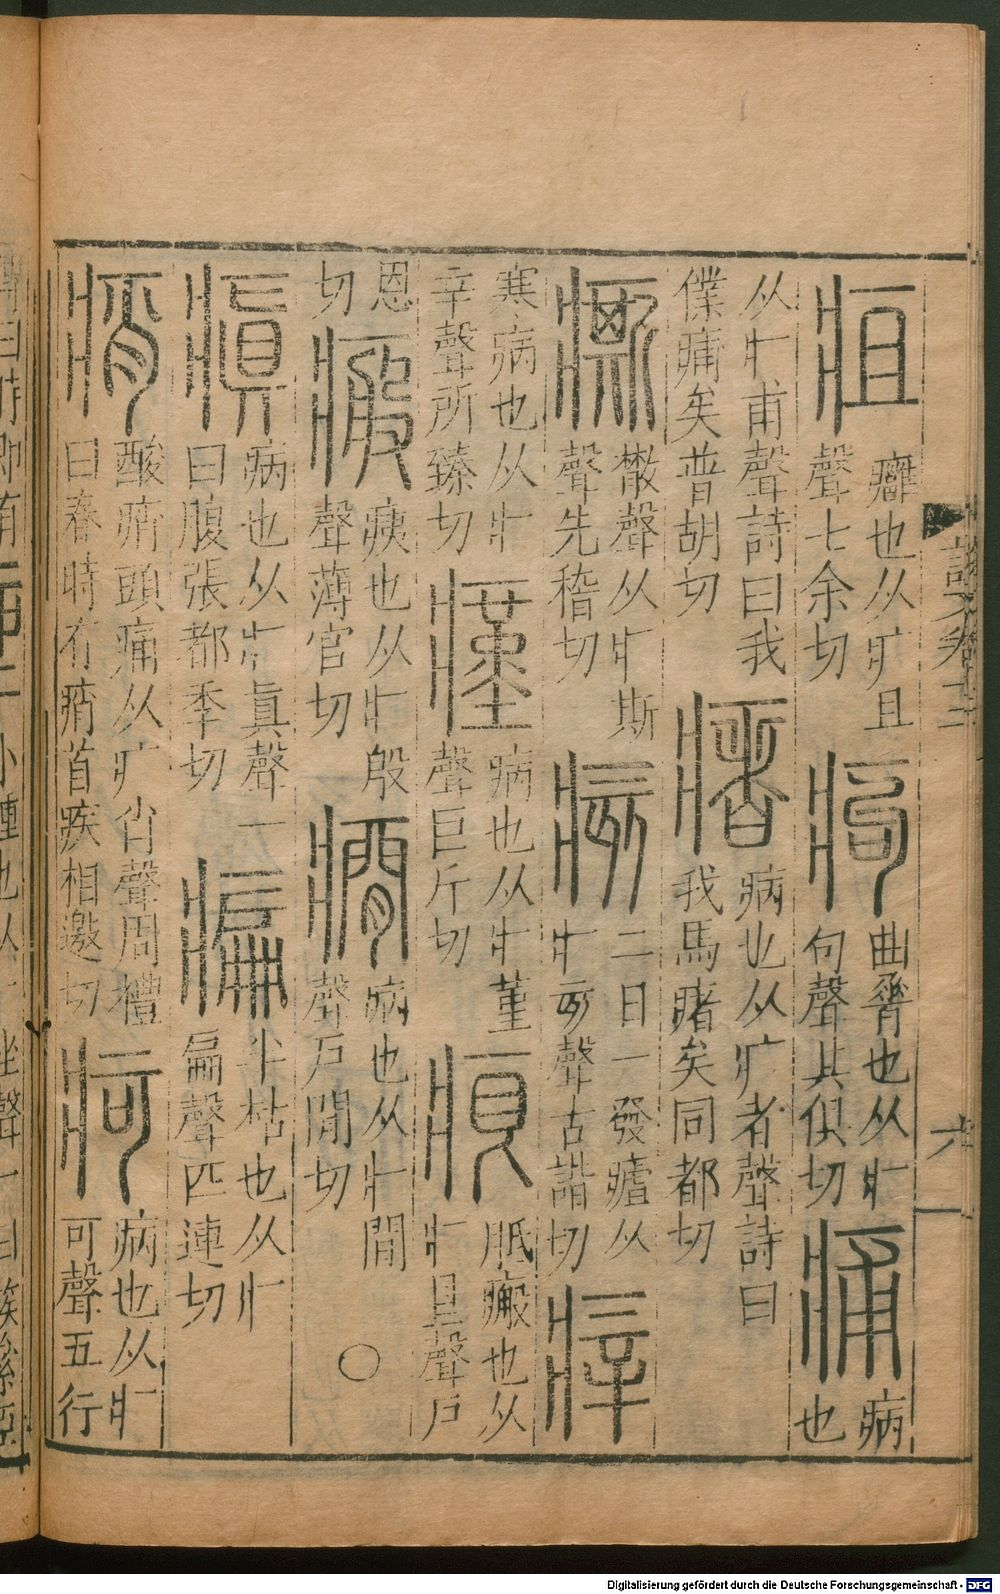 疽癰也从疒且
聲七余切
痀曲脊也从疒
句聲其俱切
痡病
也
从疒甫聲詩曰我
僕痡矣普胡切
瘏病也从疒者聲詩曰
我馬瘏矣同都切
㾷散聲从疒斯
聲先稽切
痎二日一發瘧从
疒亥聲古諧切
㾕
寒病也从疒
辛聲所臻切
瘽病也从疒堇
聲巨斤切
㾗胝瘢也从
疒艮聲戶
恩
切
瘢痍也从疒般
聲薄官切
癇病也从疒閒
聲戶閒切
〇
瘨病也从疒眞聲一
曰腹張都季切
㾫半枯也从疒
扁聲匹連切
痟酸痟頭痛从疒肖聲周禮
曰春時有痟首疾相邀切
疴病也从疒
可聲五行
說文卷
六
Digitalisierung gefördert durch die Deutsche Forschungsgemeinschaft - DFG